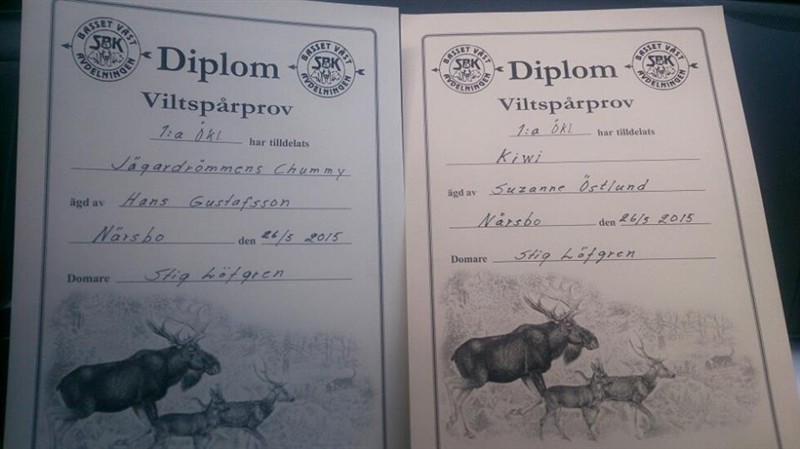 BASSET VÄST
SBK
AVDELNINGEN
BASSET VÄST
SBK
AVDELNINGEN
Diplom
Viltspårprov
1:a Ökl har tilldelats
Jägardrömmens Chummy
ägd av Hans Gustafsson
Närsbo den 26/5 2015
Domare Stig Löfgren
BASSET VÄST
SBK
AVDELNINGEN
BASSET VÄST
SBK
AVDELNINGEN
Diplom
Viltspårprov
1:a Ökl har tilldelats
Kiwi
ägd av Suzanne Östlund
Nårsbo den 26/5 2015
Domare Stig Löfgren